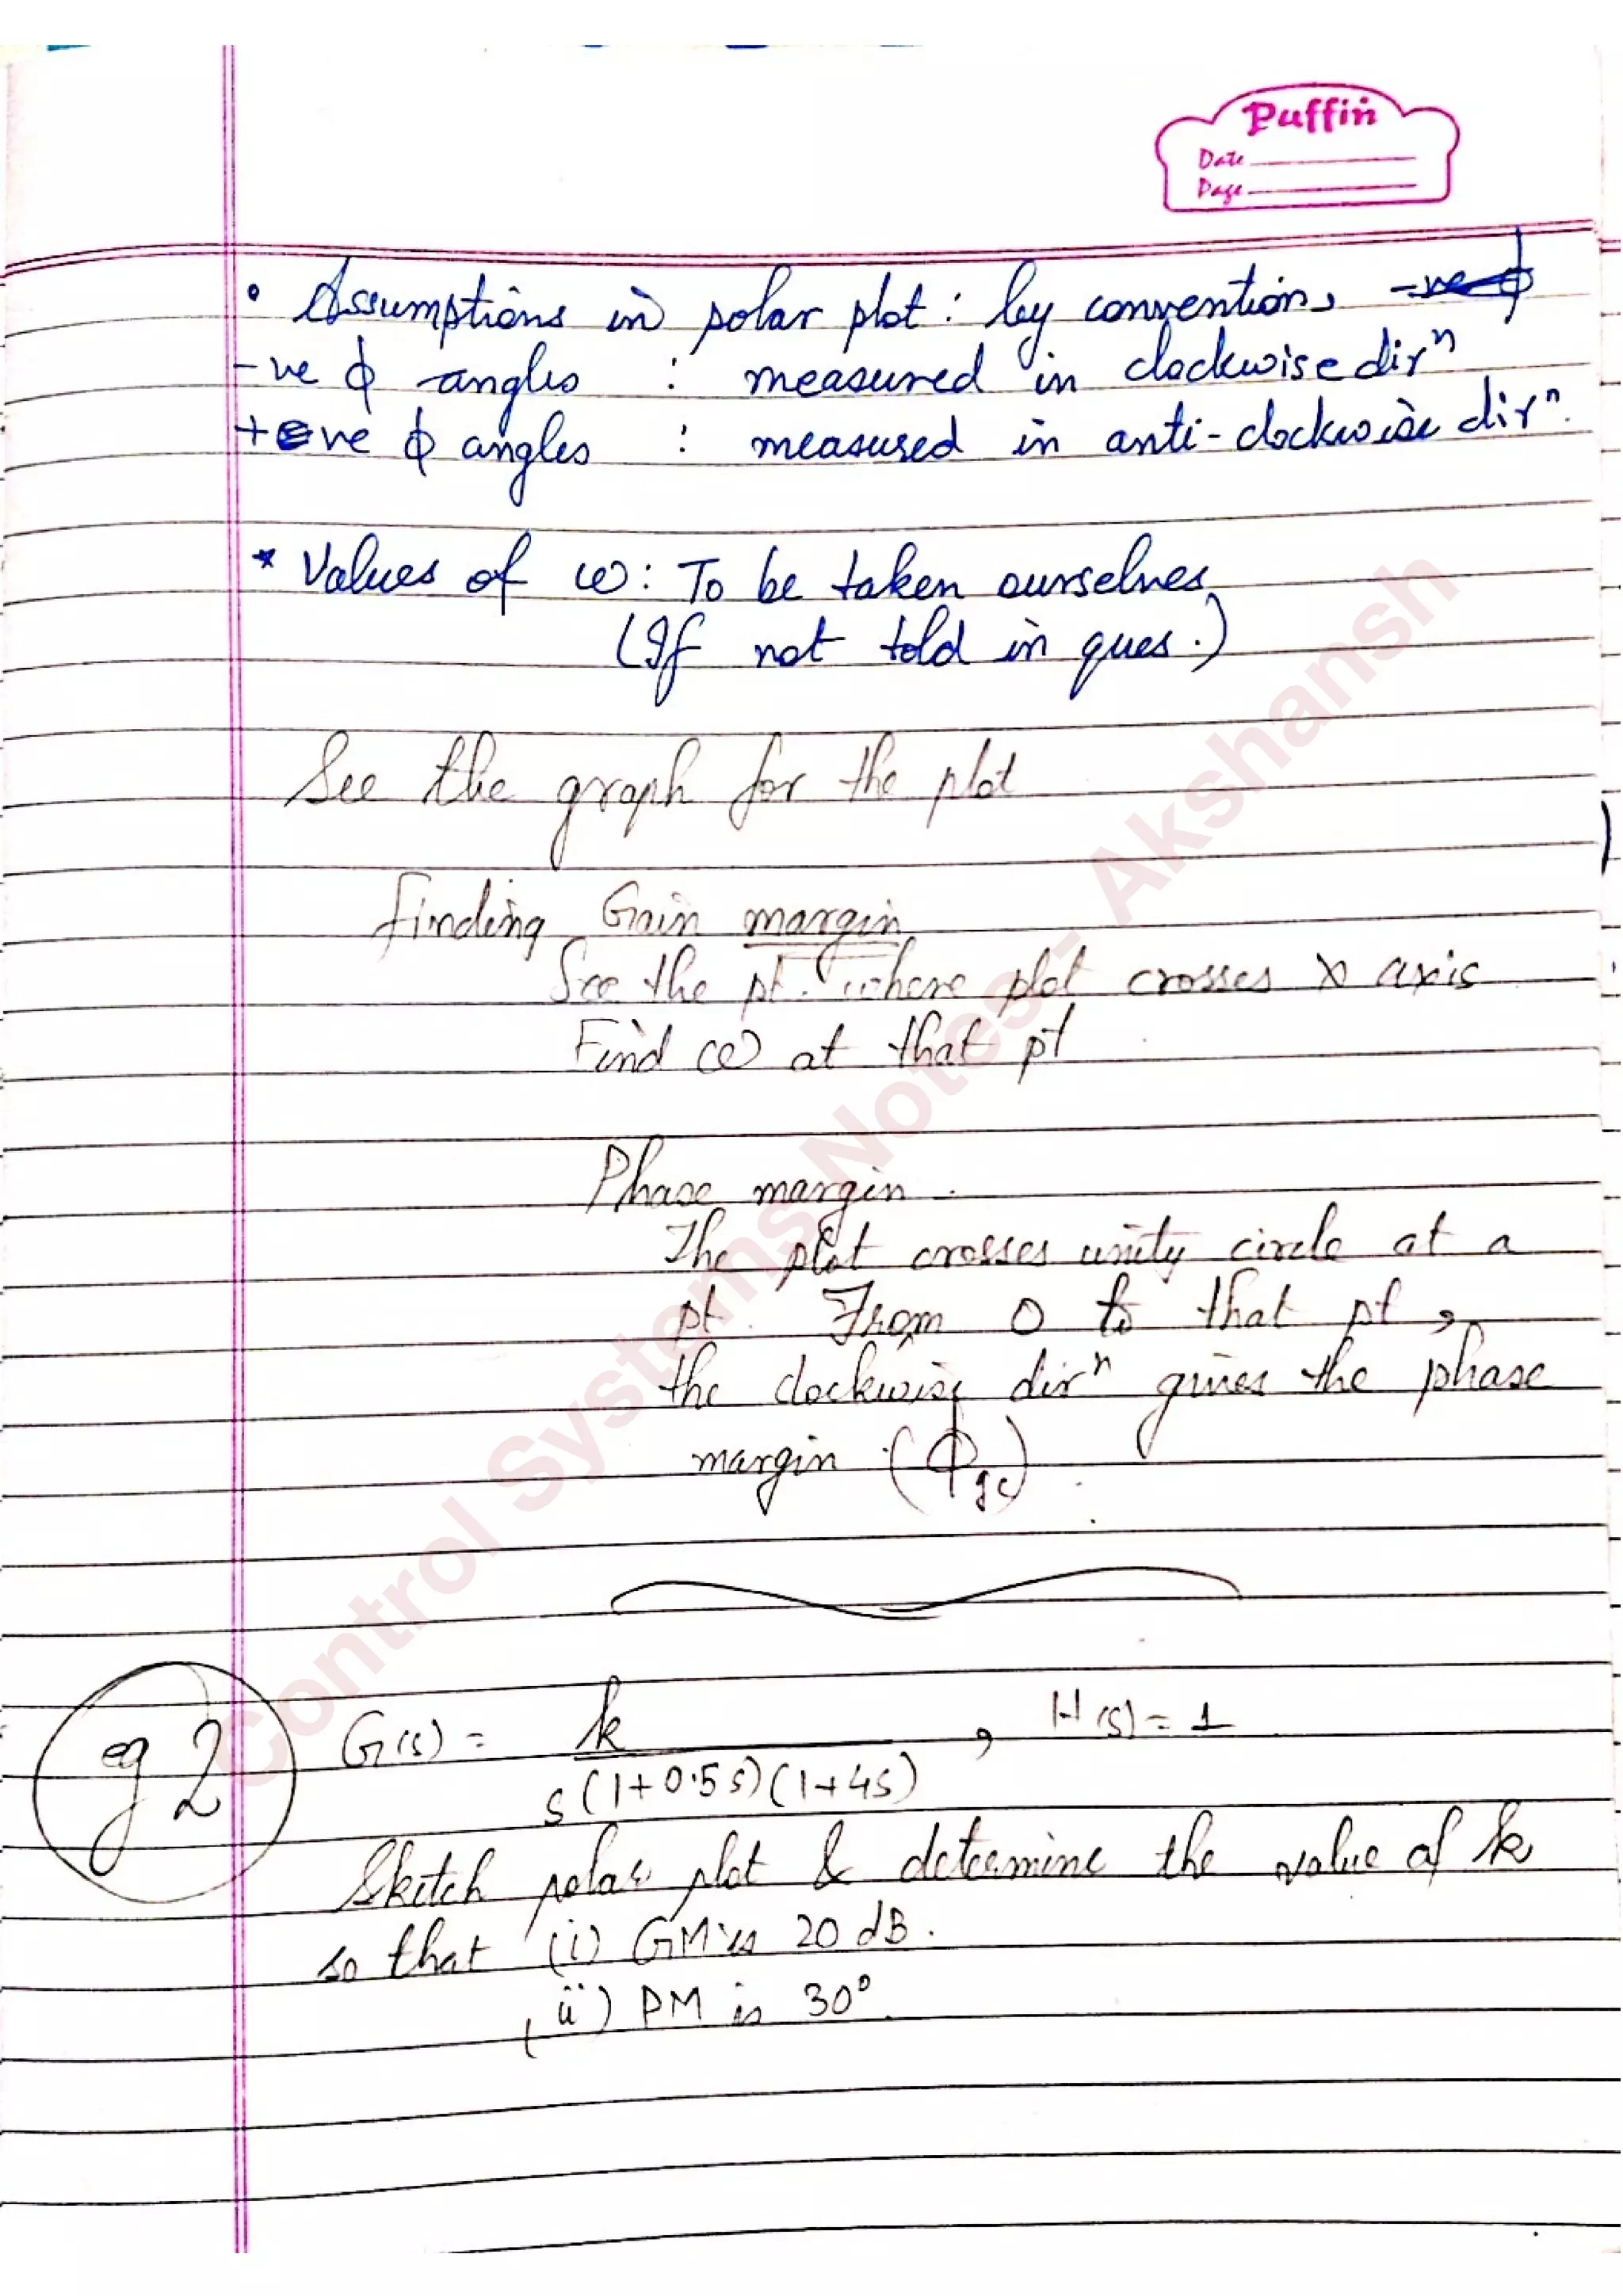 Puffin
Date
Page
• Assumptions in polar plot : by convention,
-ve ϕ angles : measured in clockwise dirⁿ
+ve ϕ angles : measured in anti-clockwise dirⁿ.
* Values of ω : To be taken ourselves
(If not told in ques.)
See the graph for the plot
Finding Gain margin
See the pt. where plot crosses x axis
Find ω at that pt
Phase margin.
The plot crosses unity circle at a
pt. From 0 to that pt,
the clockwise dirⁿ gives the phase
margin (ϕgc).
eg 2
G(s) = k / s(1+0.5s)(1+4s) , H(s) = 1
Sketch polar plot & determine the value of k
so that (i) GM is 20 dB.
(ii) PM is 30°.
Control Systems Notes - Akshansh